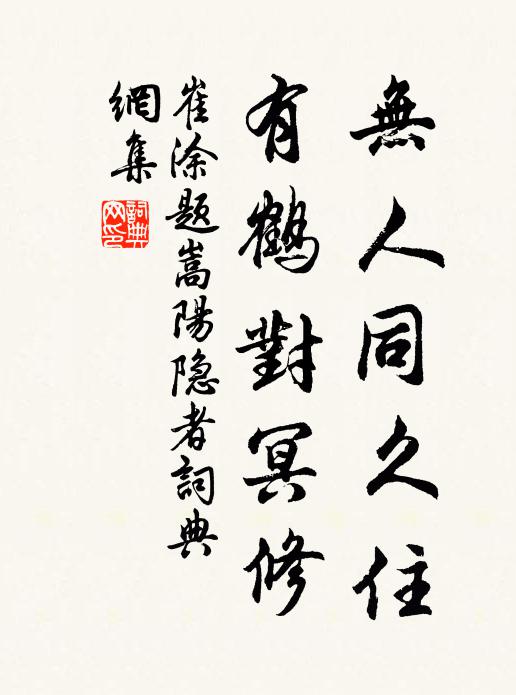 無人同久住
有鶴對冥修
崔涂題嵩陽隐者詞典
網集
詞典網印